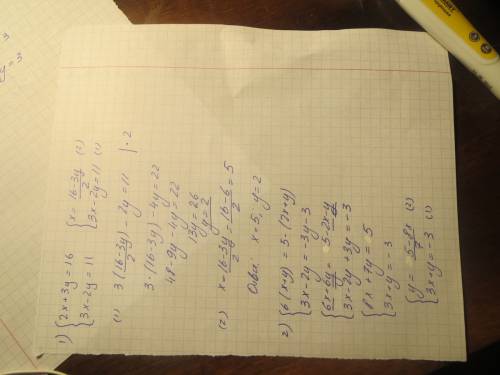 1) { 2x+3y=16
{ 3x-2y=11
{ x = (16-3y)/2 (2)
{ 3x-2y=11 (1)
(1) 3(16-3y)/2 - 2y = 11 | · 2
3·(16-3y) - 4y = 22
48-9y-4y=22
13y=26
y=2
(2) x = (16-3y)/2 = (16-6)/2 = 5
x=5, y=2
2) { 6(x+y) = 5-(2x+y)
{ 3x-2y = -3y-3
{ 6x+6y = 5-2x-y
{ 3x-2y+3y=-3
{ 8x+7y=5
{ 3x+y=-3
{ y = (5-8x)/7 (2)
{ 3x+y=-3 (1)